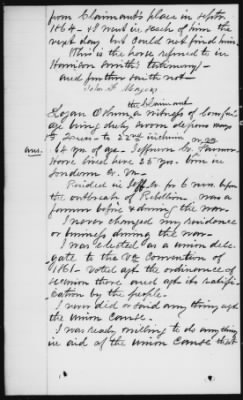 from Claimant's place in Septr
1864 - & I went in search of him the
next day but could not find him
This is the house referred to in
Harrison Smith's testimony -
and further saith not -
John A
the Claimant
Logan Osburn, a witness of lawful
age being duly sworn deposes & says
to to 22nd inclusive
ans. 64 yrs of age - Jefferson Co. Farmer
Have lived here 35 yrs. born in
Loudoun Co. Va.
Resided in Jeff. Co for 6 mos before
the outbreak of Rebellion, was a
farmer before & during the war -
I never changed my residence
or business during the war -
I was elected as a union dele-
gate to the Va Convention of
1861 - voted agst the ordinance of
secession there and agst its ratifi-
cation by the people.
I never did or said any thing agst
the Union Cause.
I was ready & willing to do any thing
in aid of the Union Cause that